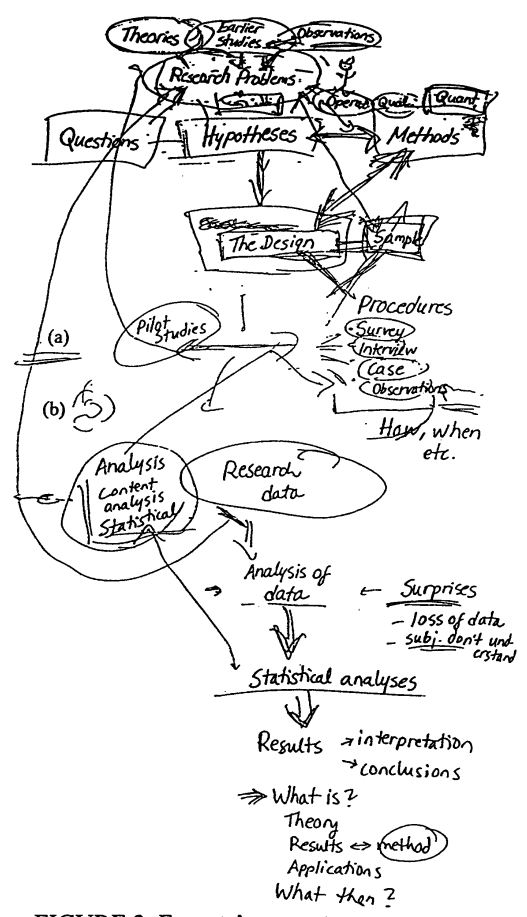 Theories
Earlier studies
Observations
Research Problems
Qual.
Quant
Questions
Hypotheses
Methods
The Design
Sample
Procedures
Survey
Interview
Case
Observations
How, when
etc.
Pilot
Studies
(a)
(b)
Analysis
Content
analysis
Statistical
Research
data
Analysis of
data
Surprises
- loss of data
- subj. don't und
erstand
Statistical analyses
Results → interpretation
→ conclusions
⇒ What is?
Theory
Results ↔ method
Applications
What then?